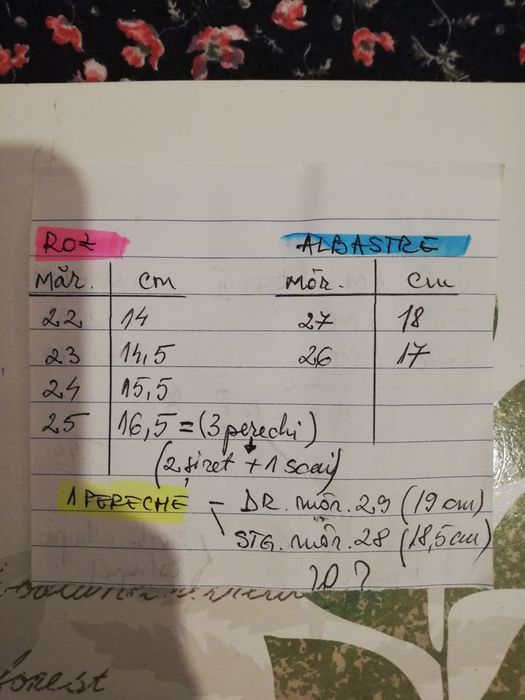 ROZ ALBASTRE
MĂR. cm MĂR. cm
22 14 27 18
23 14,5 26 17
24 15,5
25 16,5 = (3 perechi)
(2 șiret + 1 scai)
1 PERECHE - DR. măr. 29 (19 cm)
STG. măr. 28 (18,5 cm)
forest